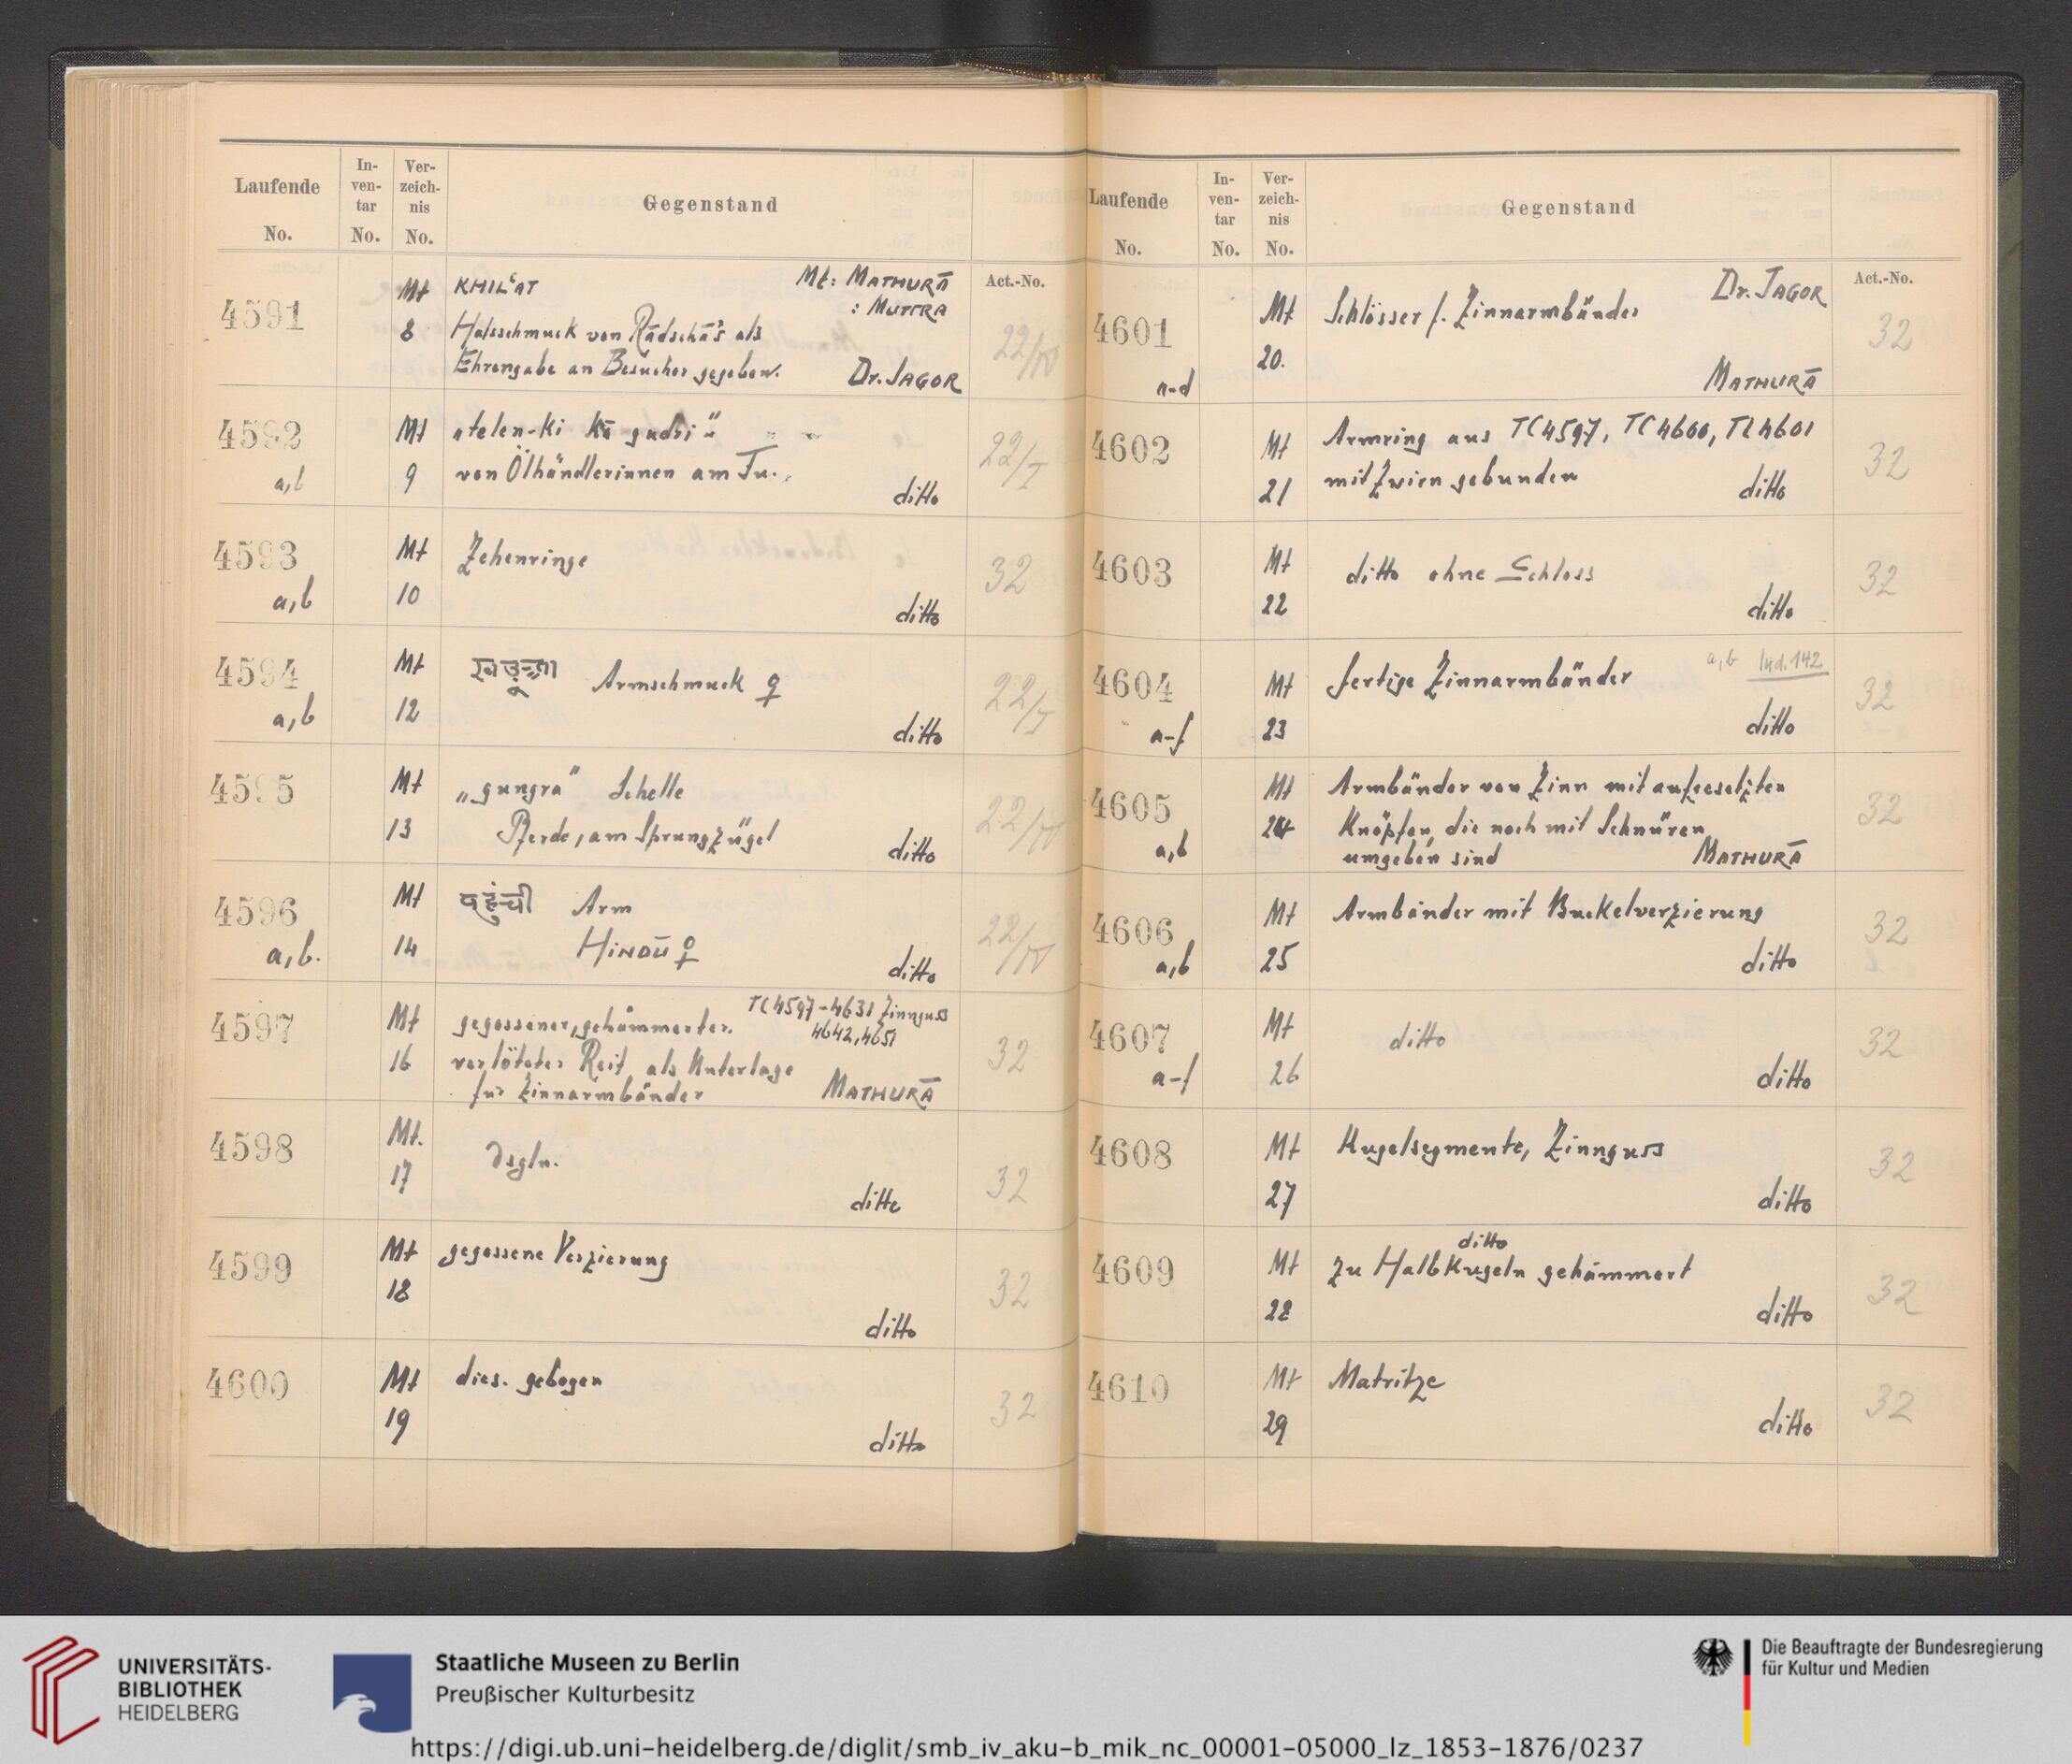 Laufende
No.
In-
ven-
tar
No.
Ver-
zeich-
nis
No.
Gegenstand
Act.-No.
4591
Mt
8
KHILʿAT
Mt: MATHURĀ
: MUTTRA
Halsschmuck von Rādschā's als
Ehrengabe an Besucher gegeben.
Dr. JAGOR
22/IV
4592
a,b
Mt
9
„telen-ki kā gudri"
von Ölhändlerinnen am
ditto
22/I
4593
a,b
Mt
10
Zehenringe
ditto
32
4594
a,b
Mt
12
Armschmuck ♀
ditto
22/I
4595
Mt
13
„gungra" Schelle
Pferde, am Sprungzügel
ditto
22/IV
4596
a,b.
Mt
14
Arm
HINDŪ ♀
ditto
22/IV
4597
Mt
16
TC4597-4631 Zinnguss
4642, 4651
gegossener, gehämmerter,
verlöteter Reif als Unterlage
für Zinnarmbänder
MATHURĀ
32
4598
Mt.
17
dsgln.
ditto
32
4599
Mt
18
gegossene Verzierung
ditto
32
4600
Mt
19
dies. gebogen
ditto
32
Laufende
No.
In-
ven-
tar
No.
Ver-
zeich-
nis
No.
Gegenstand
Act.-No.
4601
a-d
Mt
20.
Schlösser f. Zinnarmbänder
Dr. JAGOR
MATHURĀ
32
4602
Mt
21
Armring aus TC4597, TC4600, TC4601
mit Zwirn gebunden
ditto
32
4603
Mt
22
ditto ohne Schloss
ditto
32
4604
a-f
Mt
23
fertige Zinnarmbänder
a,b Ind. 142
ditto
32
4605
a,b
Mt
24
Armbänder von Zinn mit aufgesetzten
Knöpfen, die noch mit Schnüren
umgeben sind
MATHURĀ
32
4606
a,b
Mt
25
Armbänder mit Buckelverzierung
ditto
32
4607
a-f
Mt
26
ditto
ditto
32
4608
Mt
27
Kugelsegmente, Zinnguss
ditto
32
4609
Mt
28
ditto
zu Halbkugeln gehämmert
ditto
32
4610
Mt
29
Matritze
ditto
32
UNIVERSITÄTS-
BIBLIOTHEK
HEIDELBERG
Staatliche Museen zu Berlin
Preußischer Kulturbesitz
Die Beauftragte der Bundesregierung
für Kultur und Medien
https://digi.ub.uni-heidelberg.de/diglit/smb_iv_aku-b_mik_nc_00001-05000_lz_1853-1876/0237